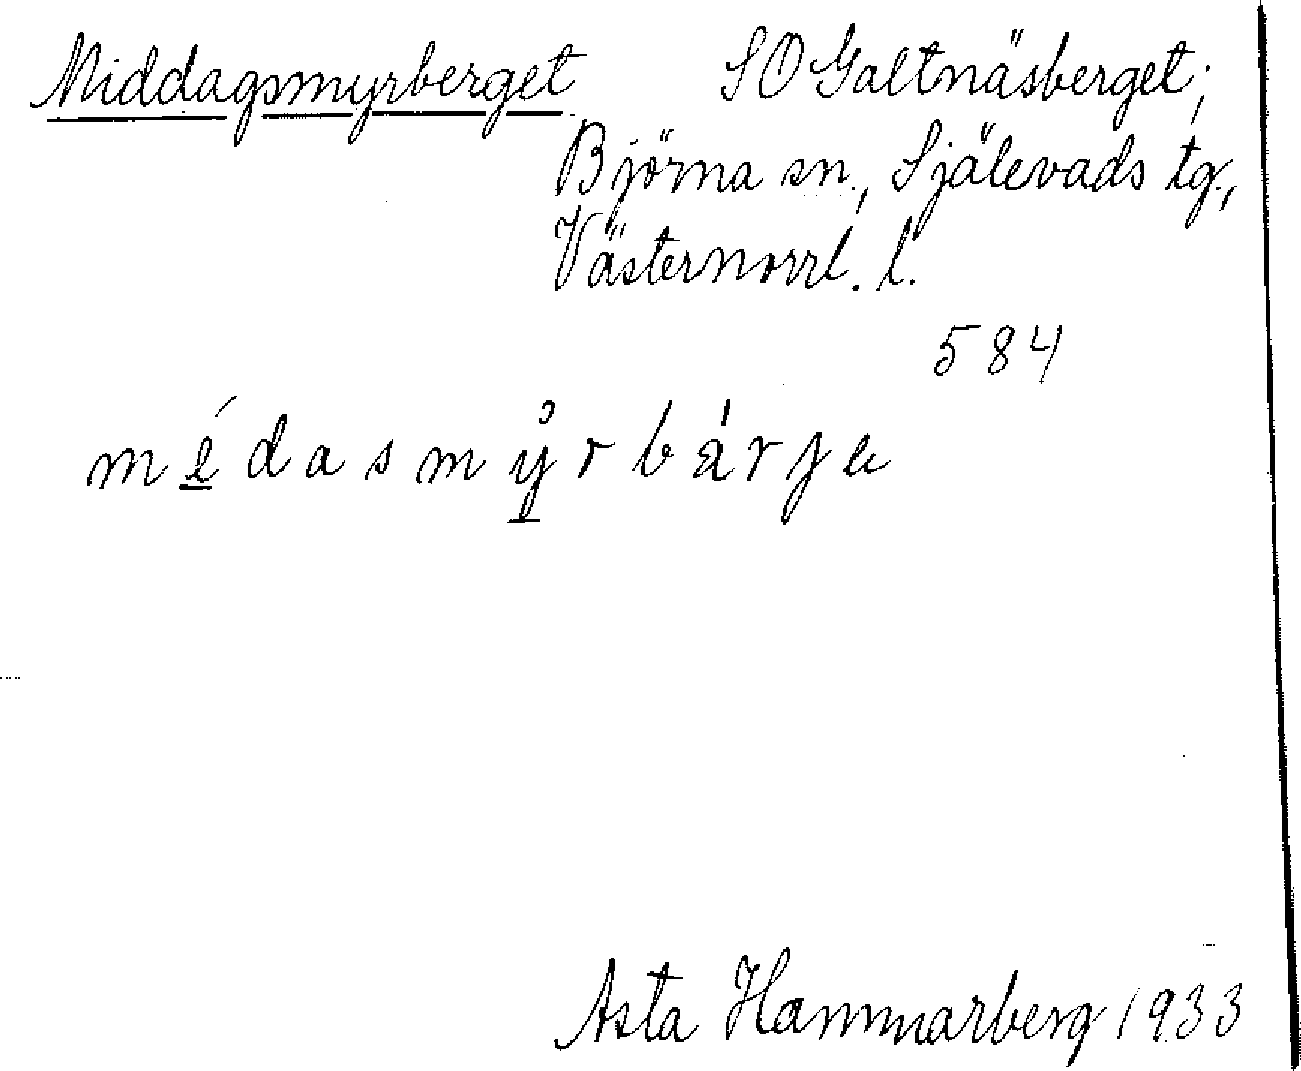 Middagsmyrberget SO Galtnäsberget;
Björna sn., Själevads tg.,
Västernorrl. l.
584
médasmýrbárje
Asta Hammarberg 1933